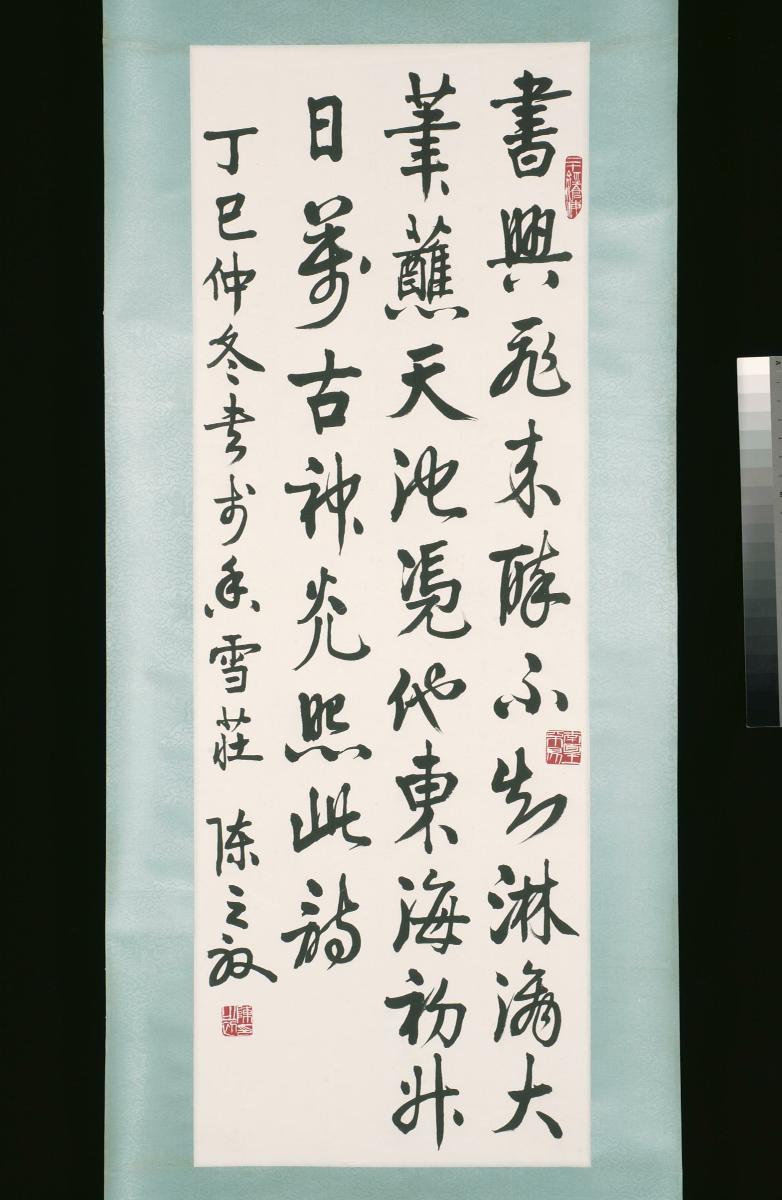 書興飛來醉不知淋漓大
筆蘸天池憑他東海初升
日萬古神光照此詩
丁巳仲冬書於香雪莊 陳之初